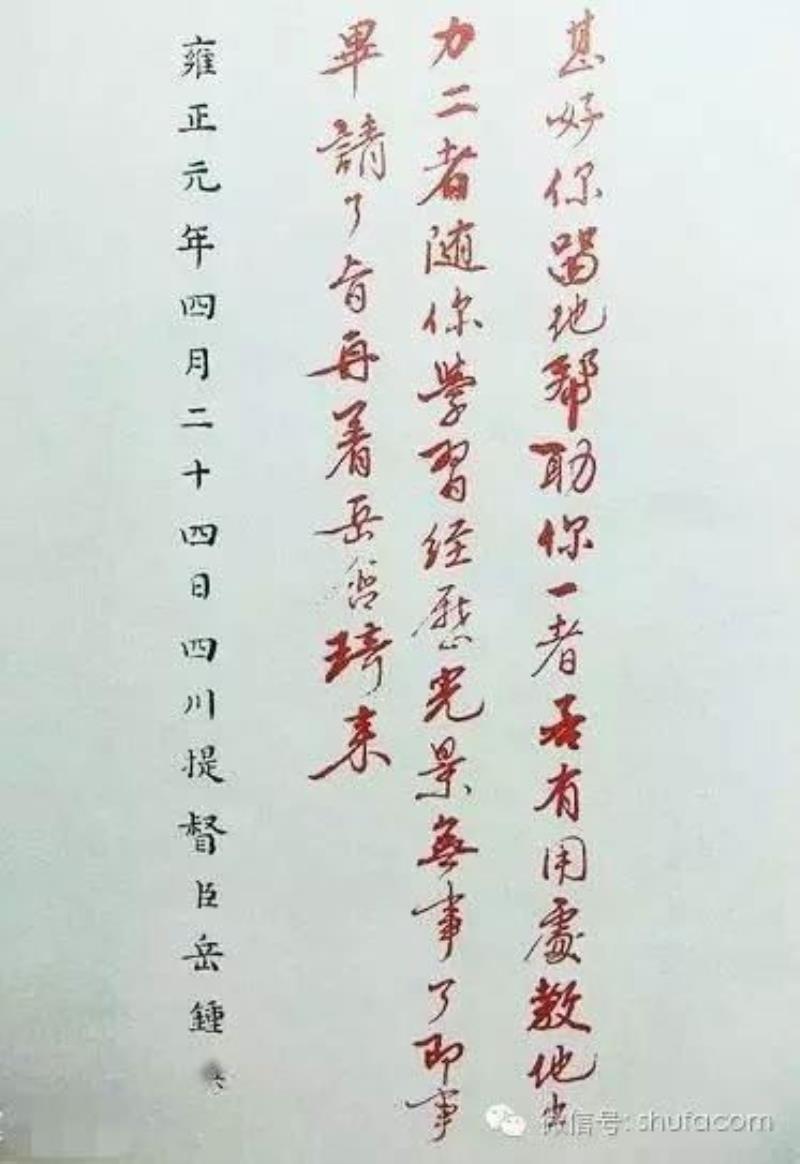 甚好你留他帮助你一者若有用處教他出
力二者随你學習經歷光景無事了即事
畢請了旨再着岳含琦来
雍正元年四月二十四日四川提督臣岳鍾
微信号: shufacom